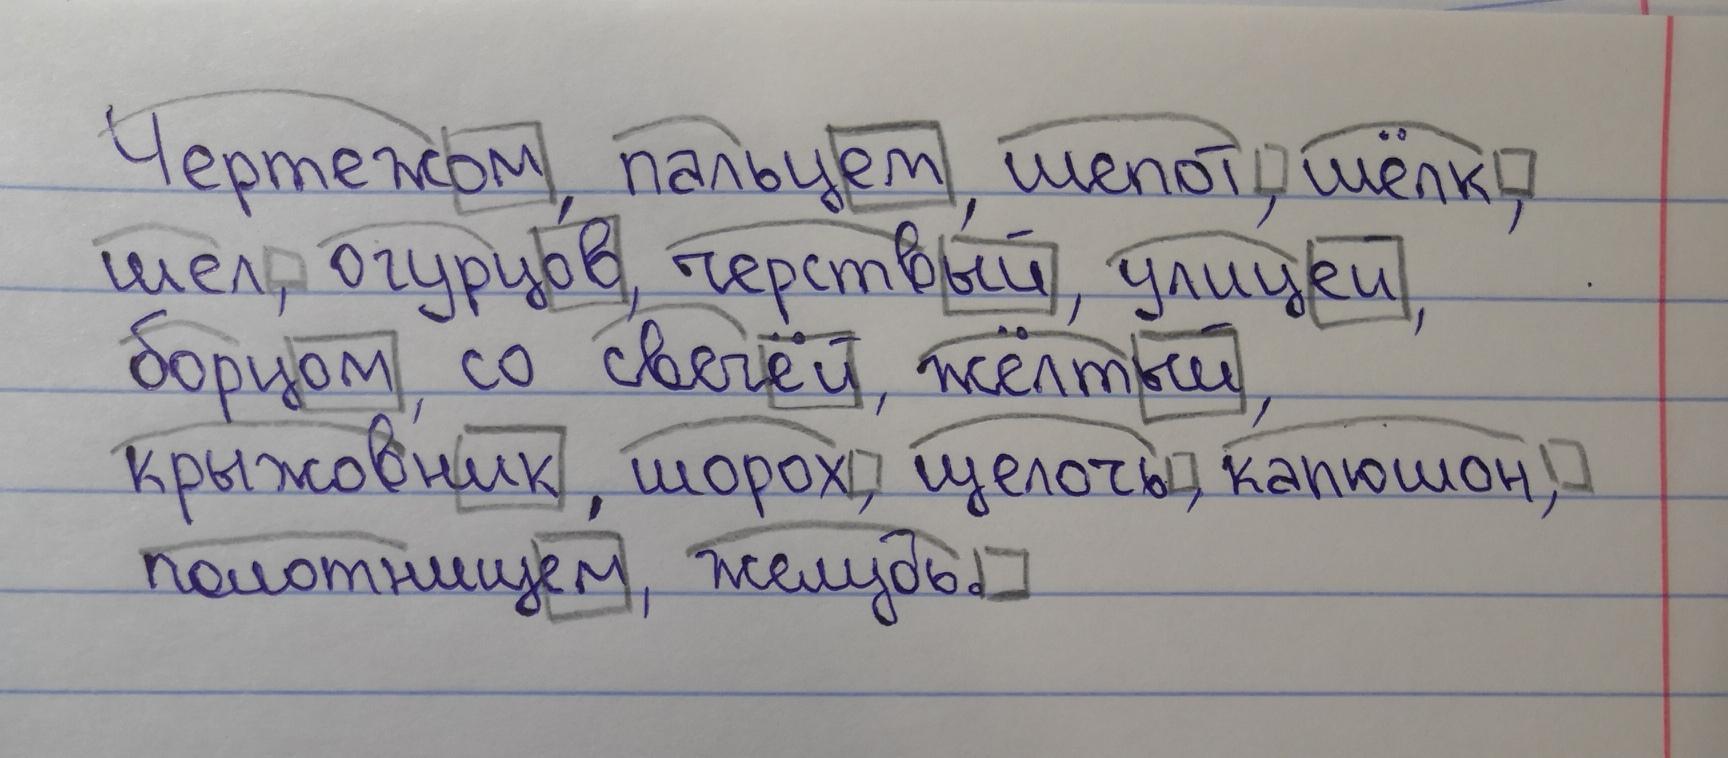 Чертежом, пальцем, шепот, шёлк,
шел, огурцов, черствый, улицей,
борцом, со свечёй, жёлтый,
крыжовник, шорох, щелочь, капюшон,
полотнищем, желудь.